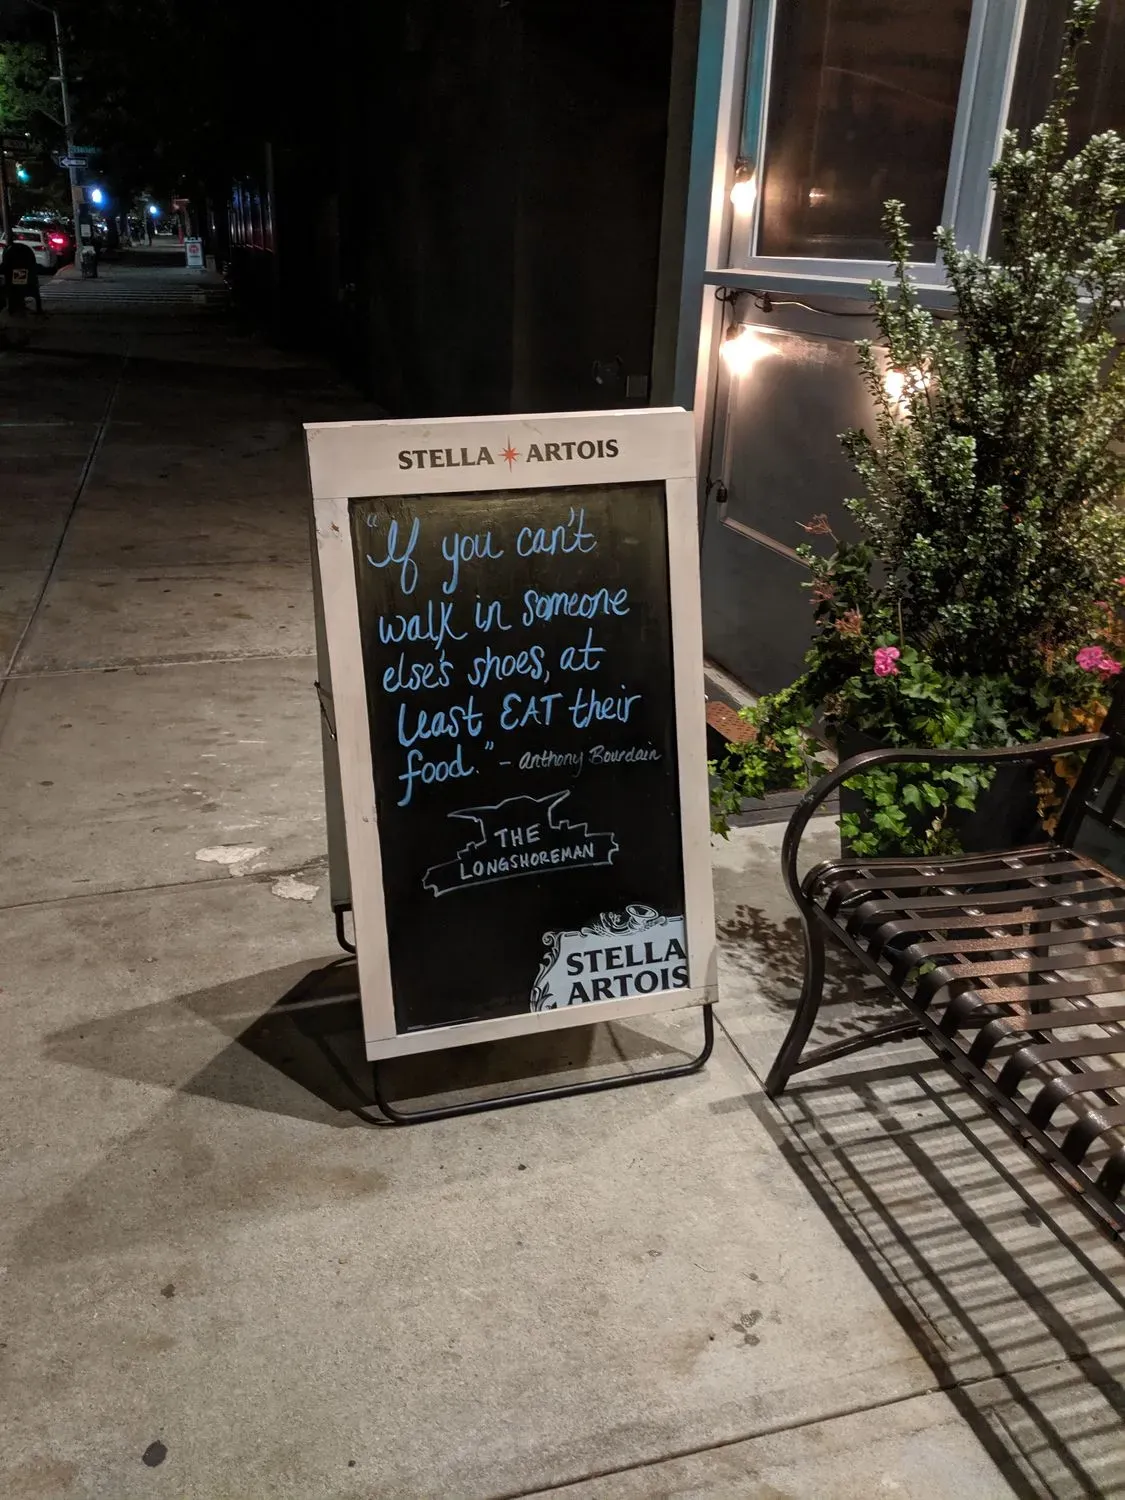 STELLA ARTOIS
"If you can't
walk in someone
else's shoes, at
least EAT their
food." - Anthony Bourdain
THE
LONGSHOREMAN
STELLA
ARTOIS